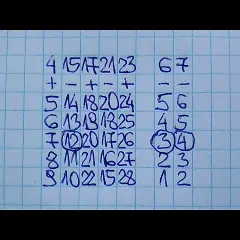 4 15 17 21 23 6 7
+ - + - + - -
5 14 18 20 24 5 6
6 13 19 18 25 4 5
7 12 20 17 26 3 4
8 11 21 16 27 2 3
9 10 22 15 28 1 2